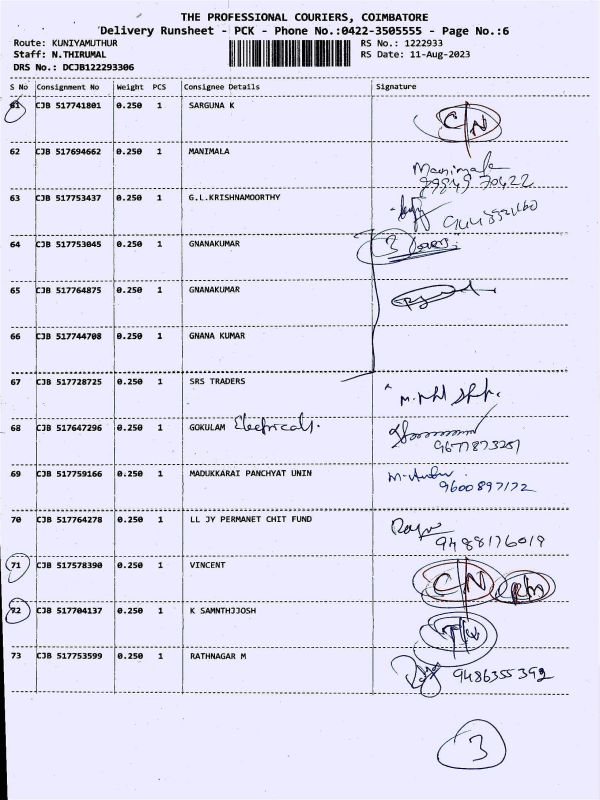 THE PROFESSIONAL COURIERS, COIMBATORE
Delivery Runsheet - PCK - Phone No.:0422-3505555 - Page No.:6
Route: KUNIYAMUTHUR RS No.: 1222933
Staff: N.THIRUMAL RS Date: 11-Aug-2023
DRS No.: DCJB122293306
S No Consignment No Weight PCS Consignee Details Signature
61 CJB 517741801 0.250 1 SARGUNA K C/N
62 CJB 517694662 0.250 1 MANIMALA Manimala
63 CJB 517753437 0.250 1 G.L.KRISHNAMOORTHY
64 CJB 517753045 0.250 1 GNANAKUMAR 3
65 CJB 517764875 0.250 1 GNANAKUMAR
66 CJB 517744708 0.250 1 GNANA KUMAR
67 CJB 517728725 0.250 1 SRS TRADERS
68 CJB 517647296 0.250 1 GOKULAM Electricals.
9677873251
69 CJB 517759166 0.250 1 MADUKKARAI PANCHYAT UNIN
9600897172
70 CJB 517764278 0.250 1 LL JY PERMANET CHIT FUND
9488176019
71 CJB 517578390 0.250 1 VINCENT C/N
72 CJB 517704137 0.250 1 K SAMNTHJJOSH
73 CJB 517753599 0.250 1 RATHNAGAR M 9486355392
3